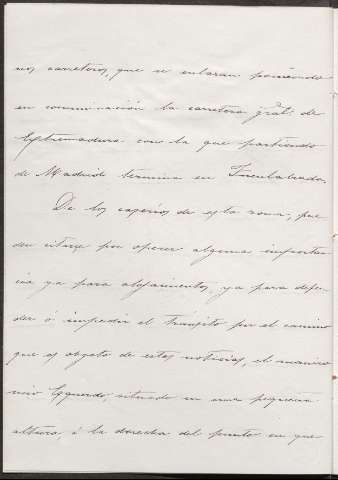 nos carreteros, que se enlazan poniendo
en comunicación la carretera gral. de
Extremadura con la que partiendo
de Madrid termina en Fuenlabrada.
De los caseríos de esta zona, pue
den citarse por ofrecer alguna importan
cia ya para alojamientos, ya para defen
der ó impedir el tránsito por el camino
que es objeto de estas noticias, el manico
mio Esquerdo, situado en una pequeña
altura, á la derecha del punto en que